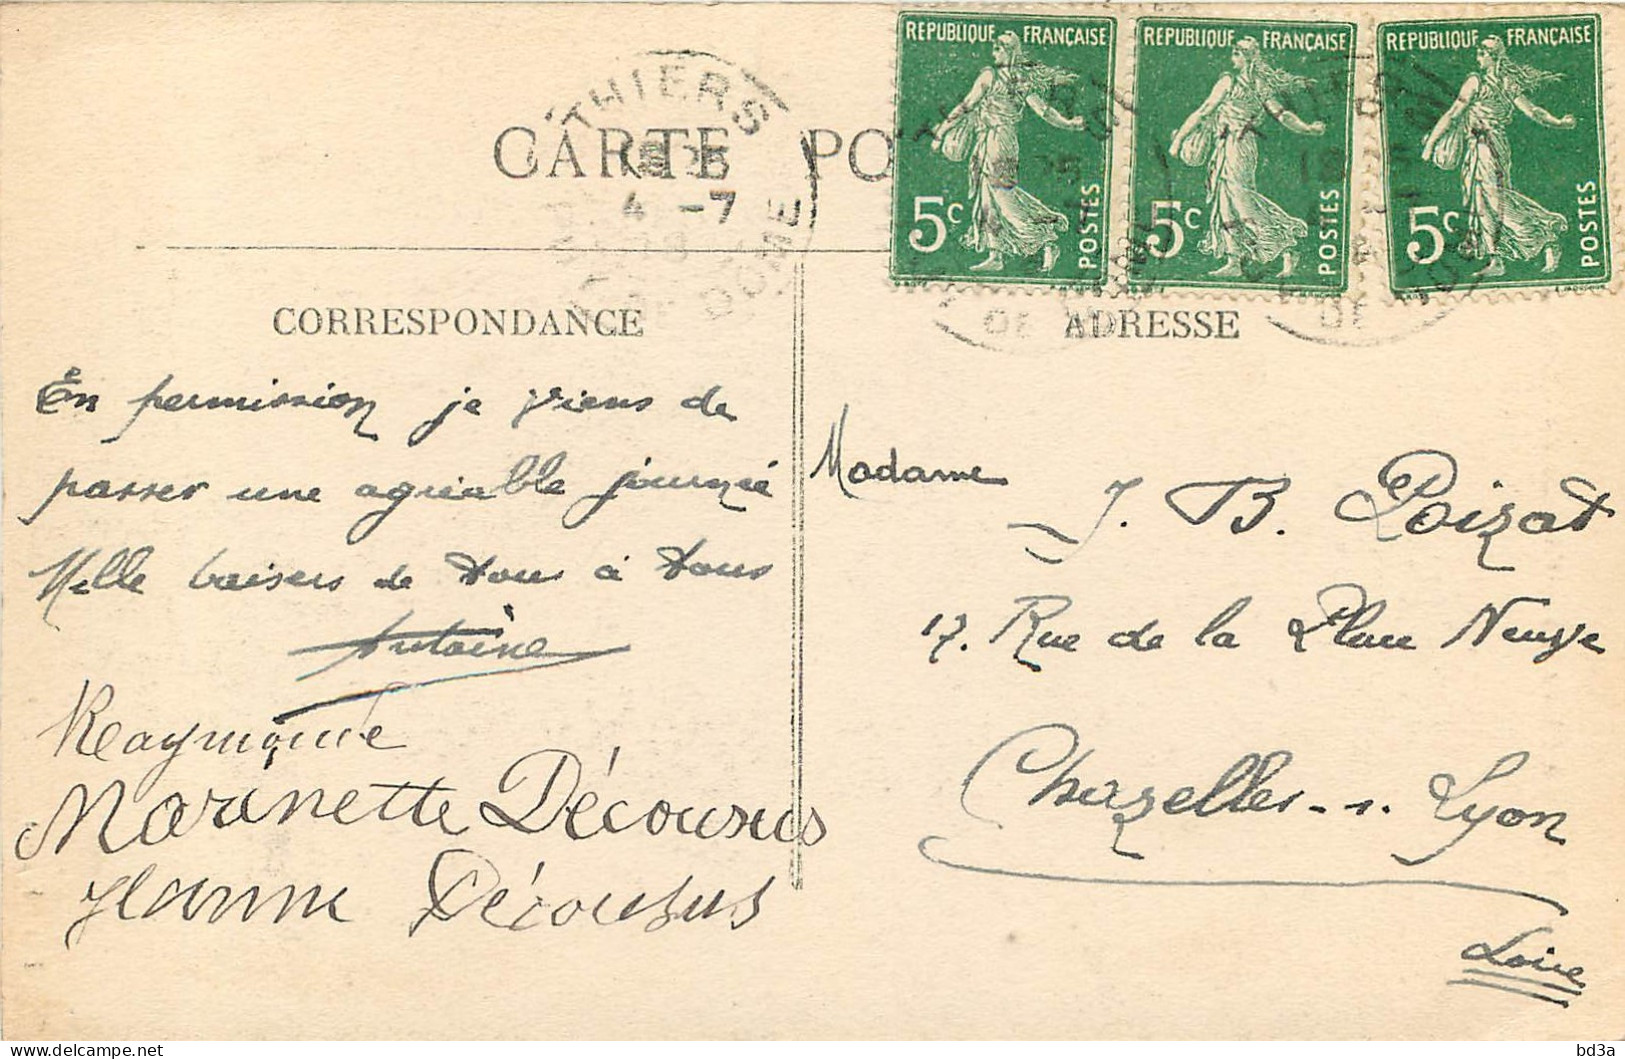 CARTE PO
REPUBLIQUE FRANÇAISE
5c POSTES
REPUBLIQUE FRANÇAISE
5c POSTES
REPUBLIQUE FRANÇAISE
5c POSTES
THIERS
18 25
4 -7
DE DOME
CORRESPONDANCE
En permission je viens de
passer une agréable journée
Mille baisers de tous à tous
Antoine
Raymonde
Marinette Décousus
Jeanne Décousus
ADRESSE
Madame
J. B. Poizat
17. Rue de la Place Neuve
Chazelles-s. Lyon
Loire
bd3a